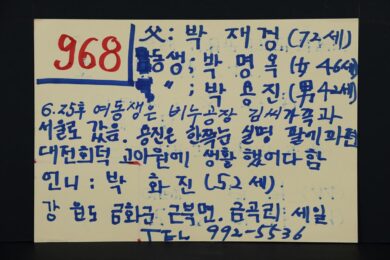 968
父: 박 재 겅 (72세)
동생; 박 명 옥 (女 46세)
〃 ; 박 용 진 (男 42세)
6.25후 여동생은 비누공장 김씨가족과
서울로 갔음. 용진은 한쪽눈 실명 팔에 파편
대전회덕 고아원에 생활 했어다 함
언니 : 박 화 진 (52세)
강원도 금화군 근북면. 금곡리 세일
TEL 992-5536